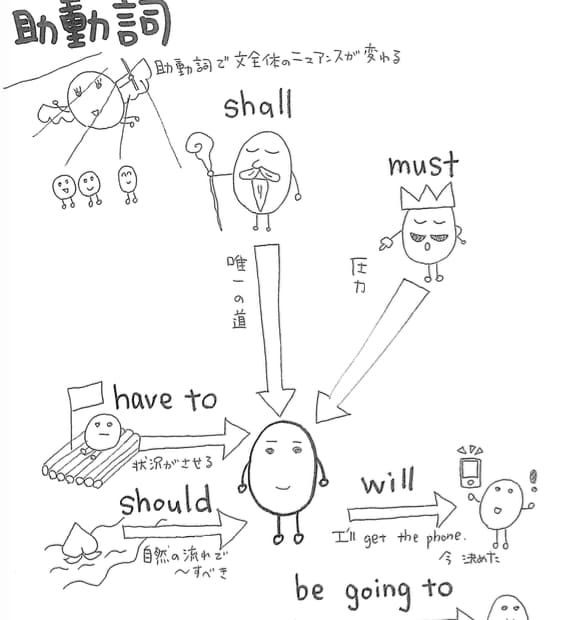 助動詞
助動詞で文全体のニュアンスが変わる
shall
must
唯一の道
圧力
have to
状況がさせる
should
自然の流れで
〜すべき
will
I'll get the phone.
今 決めた
be going to